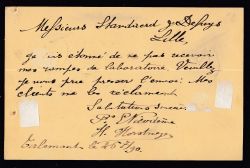 Messieurs Standaert & Defuys
Lille
Je suis étonné de ne pas recevoir
mes rampes de laboratoire Veuillez
je vous prie presser l'envoi. Mes
clients me les réclament
Salutations
P.
H.
Tirlemont le 26